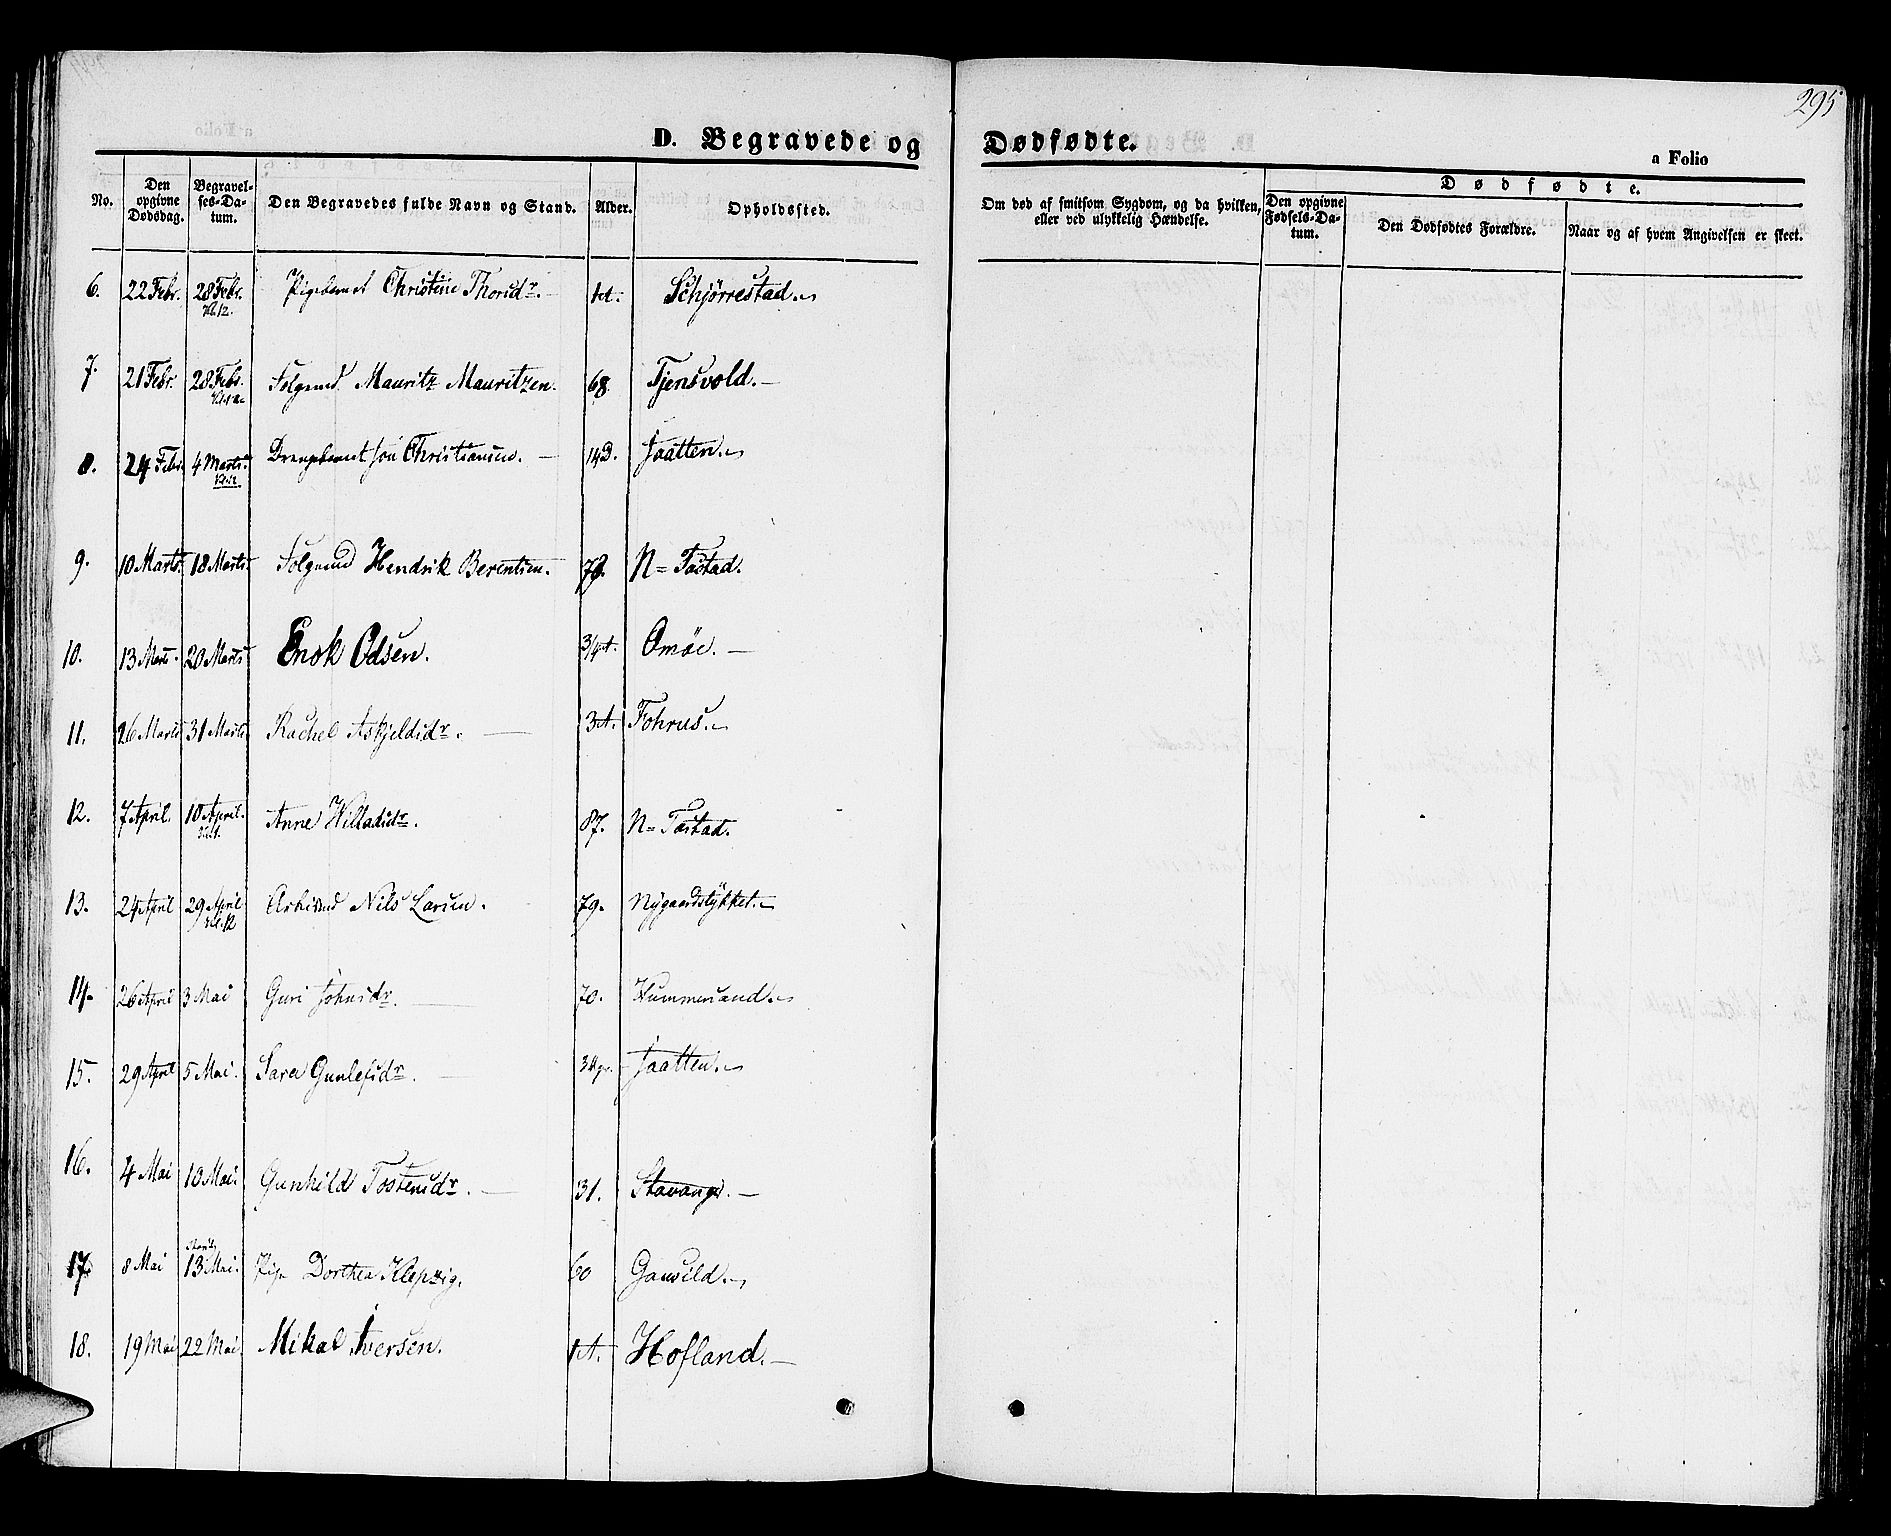 295
D. Begravede og Dødfødte.
a Folio
No.
Den opgivne Dødsdag.
Begravelses-Datum.
Den Begravedes fulde Navn og Stand.
Alder.
Opholdssted.
Om død af smitsom Sygdom, og da hvilken, eller ved ulykkelig Hændelse.
Dødfødte.
Den opgivne Fødsels-Datum.
Den Dødfødtes Forældre.
Naar og af hvem Angivelsen er skeet.
6. 22 Febr. 28 Febr. Pigebarnet Christine Thorsdr. 1 A. Schjørrestad.
7. 21 Febr. 28 Febr. Følgemd. Mauritz Mauritzen. 68 Tjensvold.
8. 24 Febr. 4 Marts. Drengebarnet Jon Christiansen. 14 D. Jaatten.
9. 10 Marts. 18 Marts. Følgemd Hendrik Berentsen. N= Tastad.
10. 13 Marts. 20 Marts Enok Odsen. 3/4 A. Omöe.
11. 26 Marts 31 Marts. Rachel Askjeldsdr. 3 A. Fohrus.
12. 7 April. 10 April. Anne Villadsdr. 87. N= Tastad.
13. 24 April 29 April Nils Larsen. 79. Nygaardstykket.
14. 26 April 3 Mai Guri Johnsdr. 70. Hummersand.
15. 29 April 5 Mai. Sara Gunlefsdr. Jaatten.
16. 4 Mai 10 Mai. Gunhild Tostensdr. 31. Stavanger.
17. 8 Mai 13 Mai. Pige Dorthea Klepzig. 60 Gausild.
18. 19 Mai 22 Mai. Mikal Iversen. 1 A. Hofland.